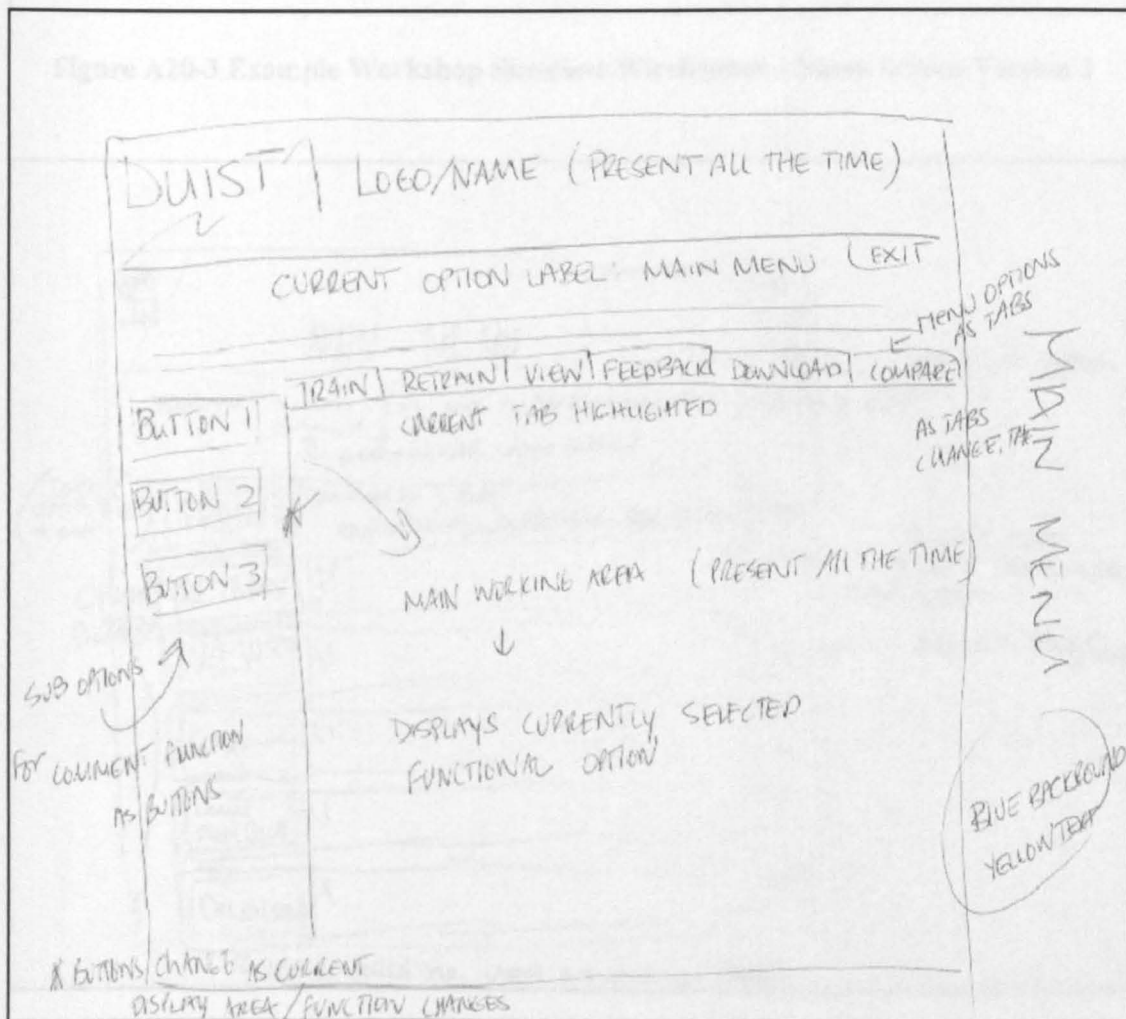 DUIST
LOGO/NAME (PRESENT ALL THE TIME)
CURRENT OPTION LABEL: MAIN MENU
EXIT
MENU OPTIONS
AS TABS
TRAIN RETRAIN VIEW FEEDBACK DOWNLOAD COMPARE
CURRENT TAB HIGHLIGHTED
AS TABS
CHANGE,
BUTTON 1
BUTTON 2
BUTTON 3
MAIN WORKING AREA (PRESENT ALL THE TIME)
DISPLAYS CURRENTLY SELECTED
FUNCTIONAL OPTION
SUB OPTIONS
FOR COMMENT FUNCTION
AS BUTTONS
MAIN MENU
BLUE BACKROUND
YELLOW TEXT
* BUTTONS CHANGE AS CURRENT
DISPLAY AREA/FUNCTION CHANGES